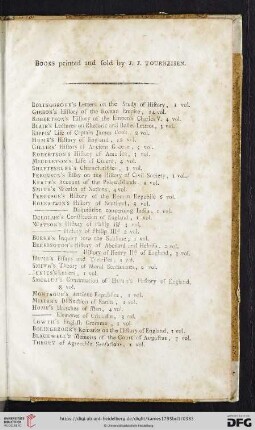 BOOKS printed and sold by J. J. TOURNEISEN.
BOLINGBROKE's Letters on the Study of History, 1 vol.
GIBBON's History of the Roman Empire, 14 vol.
ROBERTSON's History of the Emperor Charles V. 4 vol.
BLAIR's Lectures on Rhetoric and Belles Lettres, 3 vol.
KIPPIS' Life of Captain James Cook, 2 vol.
HUME's History of England, 12 vol.
GILLIES' History of Ancient Greece, 5 vol.
ROBERTSON's History of America, 3 vol.
MIDDLETON's Life of Cicero, 4 vol.
SHAFTESBURY's Characteristics, 3 vol.
FERGUSON's Essay on the History of Civil Society, 1 vol.
KEATE's Account of the Pelew Islands, 1 vol.
SMITH's Wealth of Nations, 4 vol.
FERGUSON's History of the Roman Republic 6 vol.
ROBERTSON's History of Scotland, 3 vol.
Disquisition concerning India, 1 vol.
DE LOLME's Constitution of England, 1 vol.
WATSON's History of Philip II. vol.
History of Philip III. 2 vol.
BURKE's Inquiry into the Sublime, 1 vol.
BERINGTON's History of Abeillard and Heloisa, 2 vol.
History of Henry II. of England, 3 vol.
HUME's Essays and Treatises, 4 vol.
SMITH's Theory of Moral Sentiments, 2 vol.
vol.
SMOLLETT's Continuation of Hume's History of England,
8 vol.
MONTAGUE's Antient Republics, 1 vol.
MILLAR's Distinction of Ranks, 1 vol.
HOME's Sketches of Man, 4 vol.
Elements of Criticism, 3 vol.
LOWTH's English Grammar, 1 vol.
BOLINGBROKE's Remarks on the History of England, 1 vol.
BLACKWELL's Memoirs of the Court of Augustus, 7 vol.
THEORY of Agreeable Sensations, 1 vol.